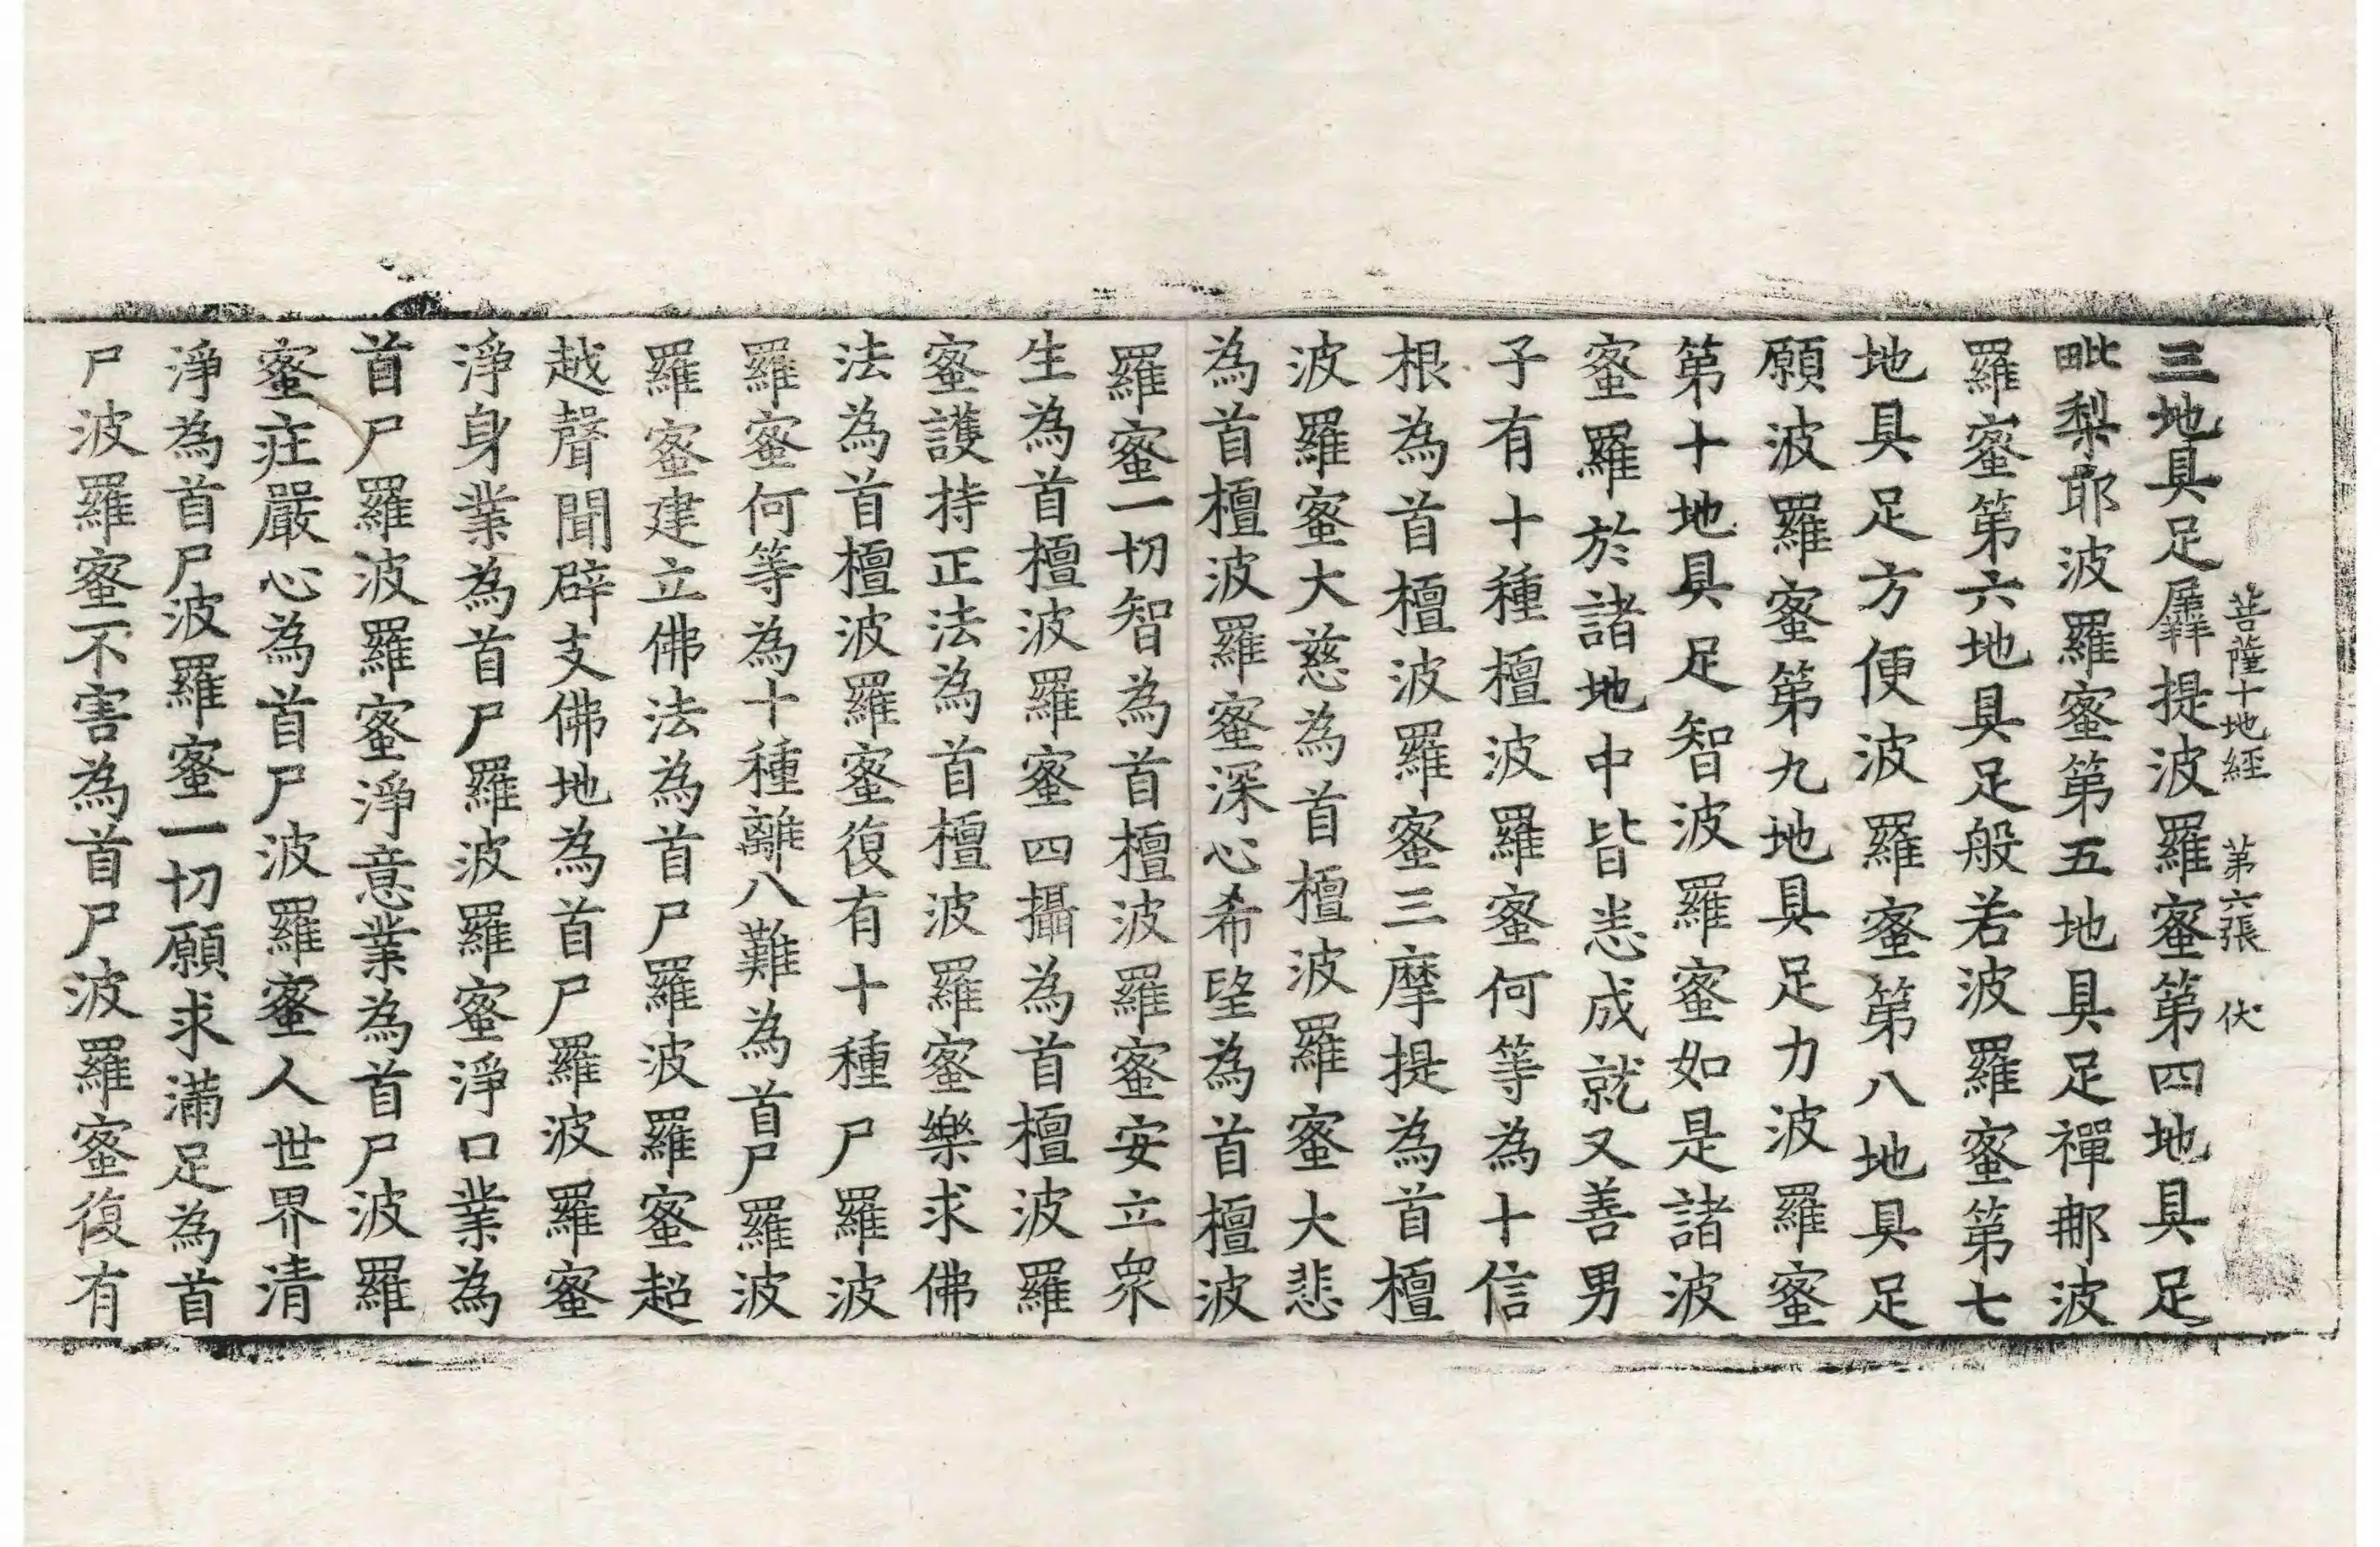 菩薩十地經 第六張 伏
三地具足羼提波羅蜜第四地具足
毗梨耶波羅蜜第五地具足禪那波
羅蜜第六地具足般若波羅蜜第七
地具足方便波羅蜜第八地具足
願波羅蜜第九地具足力波羅蜜
第十地具足智波羅蜜如是諸波
蜜羅於諸地中皆悉成就又善男
子有十種檀波羅蜜何等為十信
根為首檀波羅蜜三摩提為首檀
波羅蜜大慈為首檀波羅蜜大悲
為首檀波羅蜜深心希望為首檀波
羅蜜一切智為首檀波羅蜜安立眾
生為首檀波羅蜜四攝為首檀波羅
蜜護持正法為首檀波羅蜜樂求佛
法為首檀波羅蜜復有十種尸羅波
羅蜜何等為十種離八難為首尸羅波
羅蜜建立佛法為首尸羅波羅蜜超
越聲聞辟支佛地為首尸羅波羅蜜
淨身業為首尸羅波羅蜜淨口業為
首尸羅波羅蜜淨意業為首尸波羅
蜜莊嚴心為首尸波羅蜜人世界清
淨為首尸波羅蜜一切願求滿足為首
尸波羅蜜不害為首尸波羅蜜復有